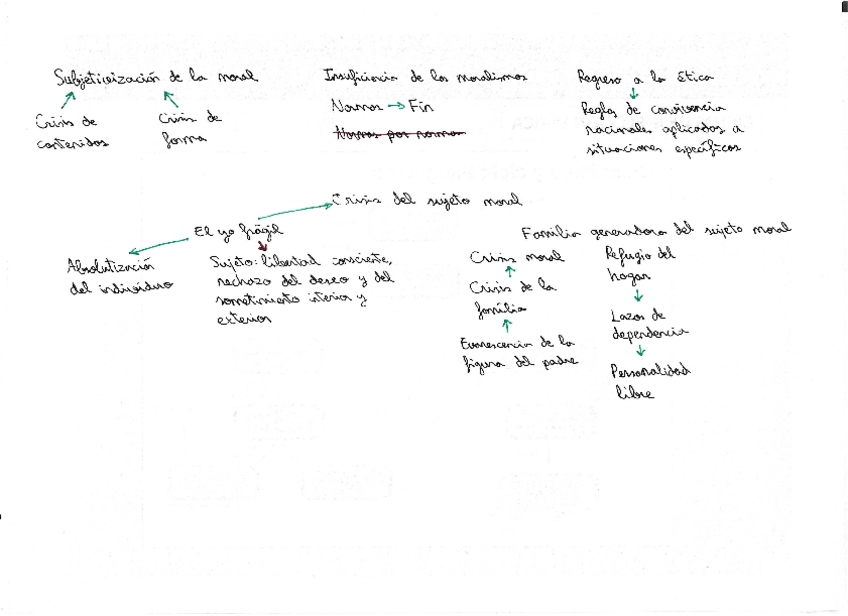 Subjetivización de la moral
Crisis de
contenidos
Crisis de
forma
Insuficiencia de los moralismos
Normas → Fin
Normas por normas
Regreso a la ética
Reglas de convivencia
racionales aplicadas a
situaciones específicas
Crisis del sujeto moral
El yo frágil
Absolutización
del individuo
Sujeto: libertad consciente,
rechazo del deseo y del
sometimiento interior y
exterior
Familia generadora del sujeto moral
Crisis moral
Crisis de la
familia
Evanescencia de la
figura del padre
Refugio del
hogar
Lazos de
dependencia
Personalidad
libre